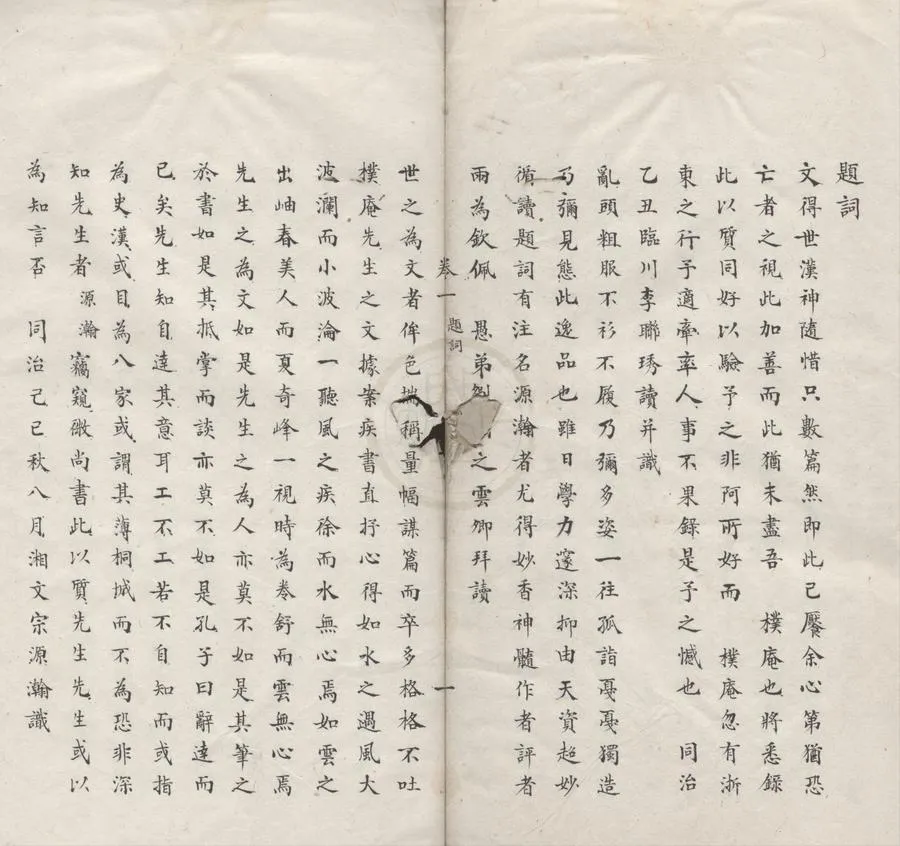 題詞
文得世漢神隨惜只數篇然即此已饜余心第猶恐
亡者之視此加善而此猶未盡吾 樸庵也將悉錄
此以質同好以驗予之非阿所好而 樸庵忽有浙
東之行予適牽率人事不果錄是予之憾也 同治
乙丑臨川李聯琇讀并識
亂頭粗服不衫不履乃彌多姿一往孤詣戛戛獨造
乃彌見態此逸品也雖日學力邃深抑由天資超妙
循讀題詞有注名源瀚者尤得妙香神髓作者評者
兩為欽佩 愚弟 之雲卿拜讀
卷一 題詞 一
世之為文者侔色揣稱量幅謀篇而卒多格格不吐
樸庵先生之文據案疾書直抒心得如水之過風大
波瀾而小波淪一聽風之疾徐而水無心焉如雲之
出岫春美人而夏奇峰一視時為卷舒而雲無心焉
先生之為文如是先生之為人亦莫不如是其筆之
於書如是其抵掌而談亦莫不如是孔子曰辭達而
已矣先生知自達其意耳工不工若不自知而或指
為史漢或目為八家或謂其薄桐城而不為恐非深
知先生者源瀚竊窺微尚書此以質先生先生或以
為知言否 同治己巳秋八月湘文宗源瀚識